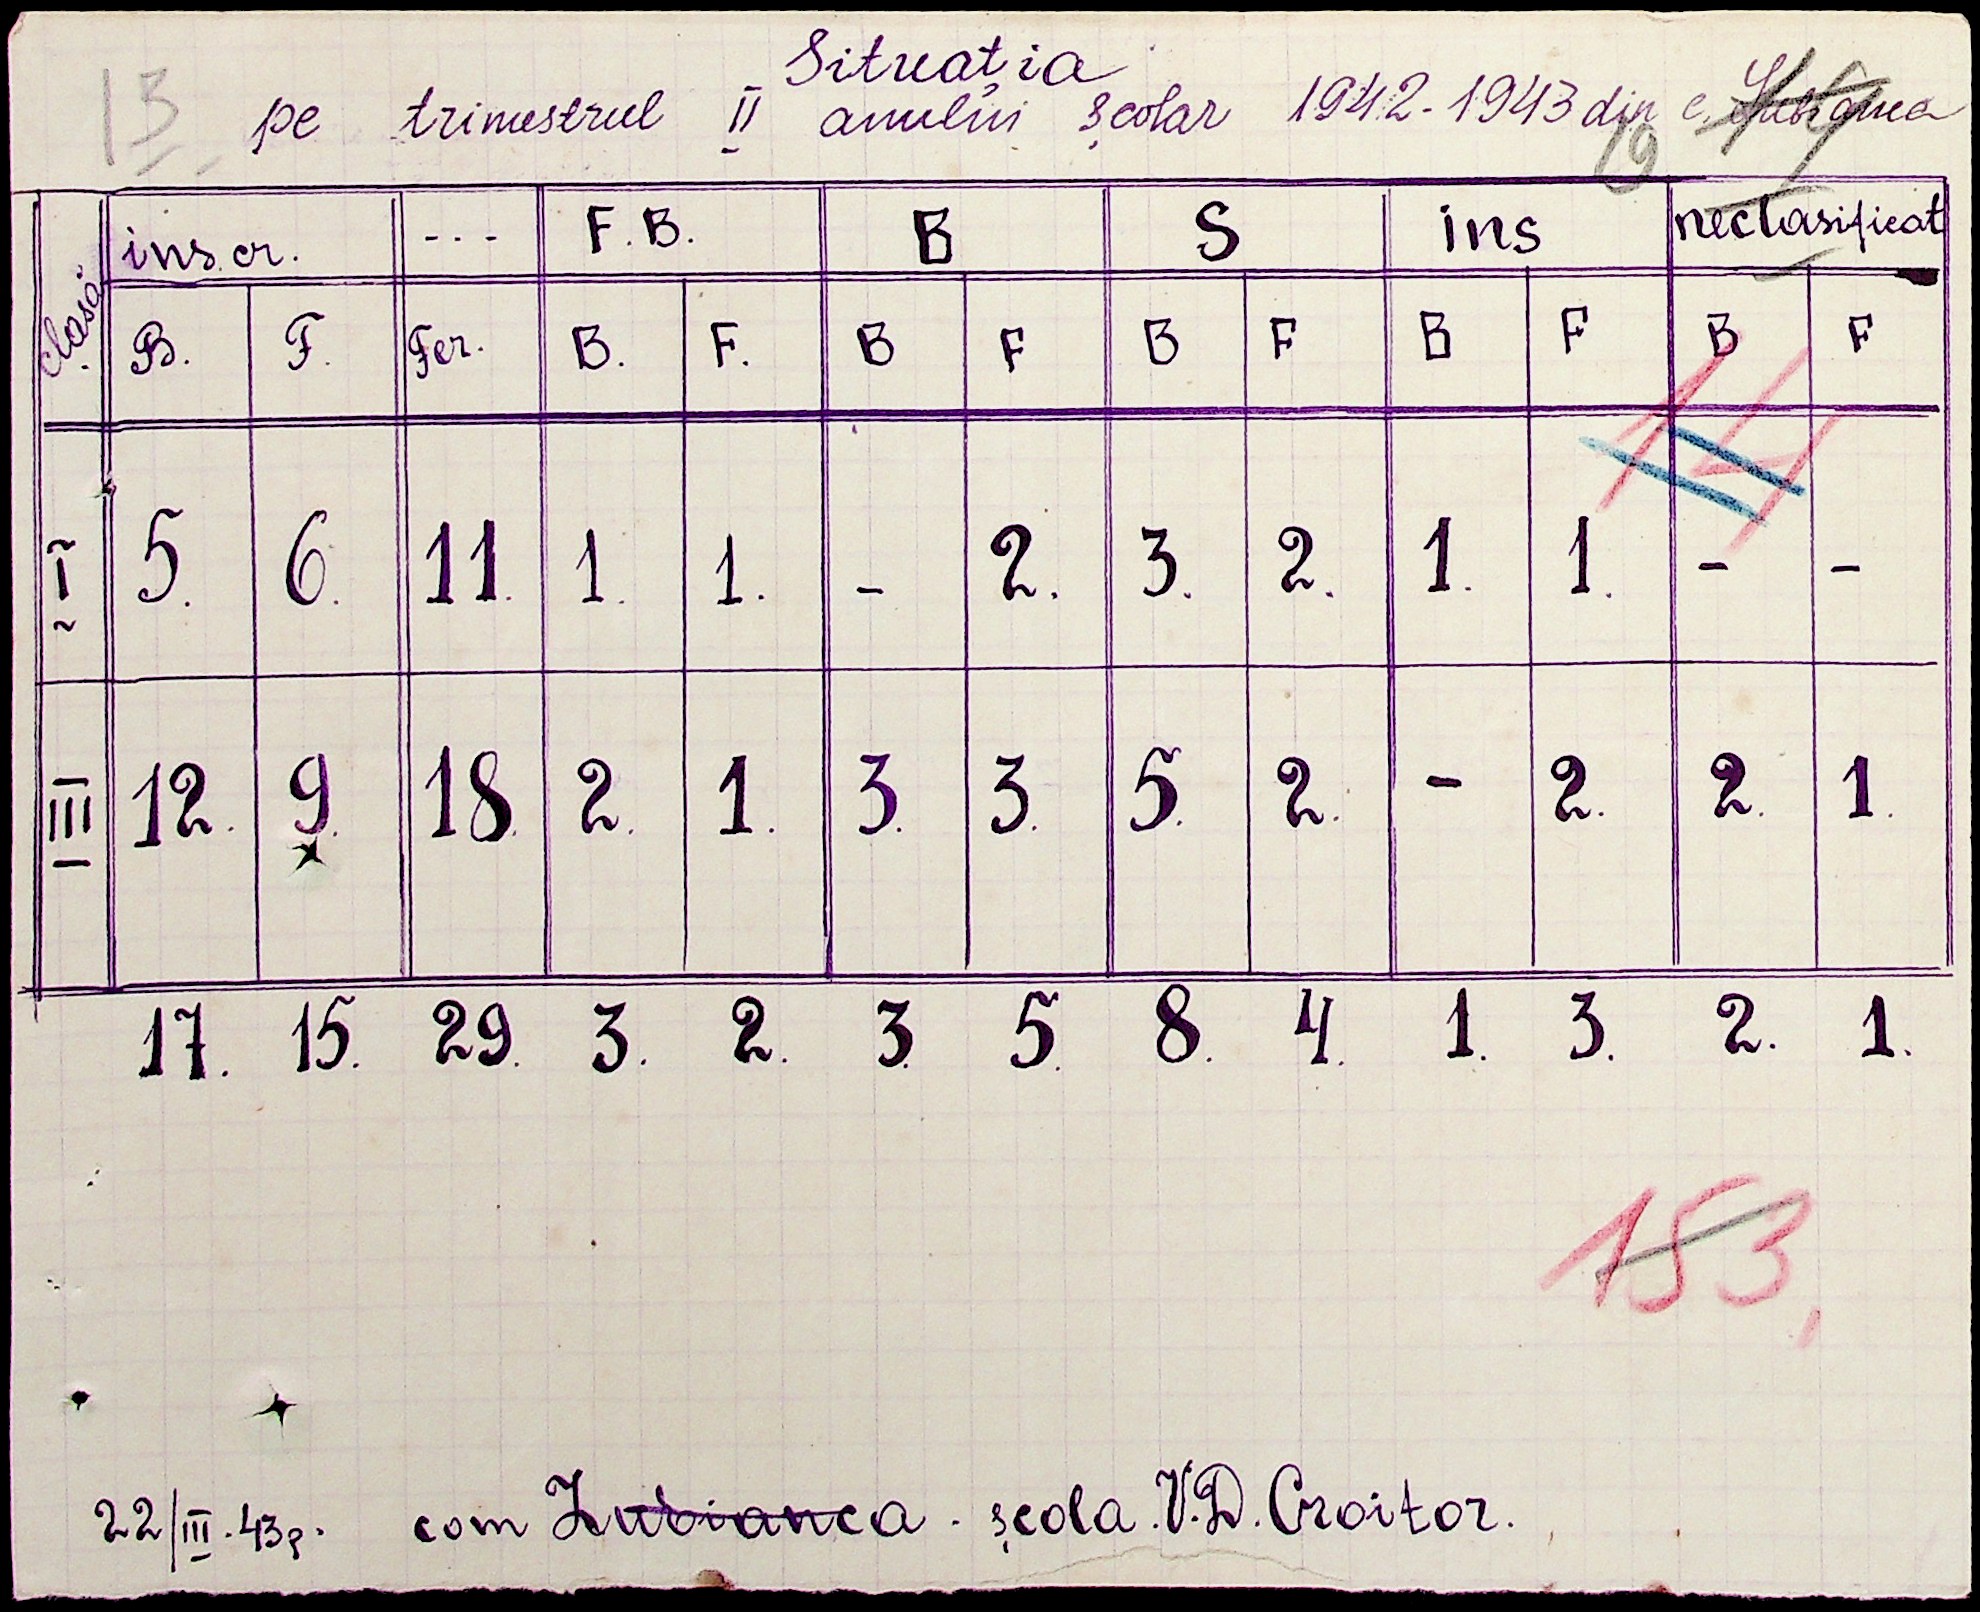 Situația
13 pe trimestrul II anului școlar 1942-1943 din c.
19
clasa inscr. --- F.B. B S ins neclasificat
B. F. Fer. B. F. B F B F B F B F
14
I 5. 6. 11. 1. 1. - 2. 3. 2. 1. 1. - -
III 12. 9. 18. 2. 1. 3. 3. 5. 2. - 2. 2. 1.
17. 15. 29. 3. 2. 3. 5. 8. 4. 1. 3. 2. 1.
153,
22/III.43 com Zubianca. școla. V.D. Croitor.